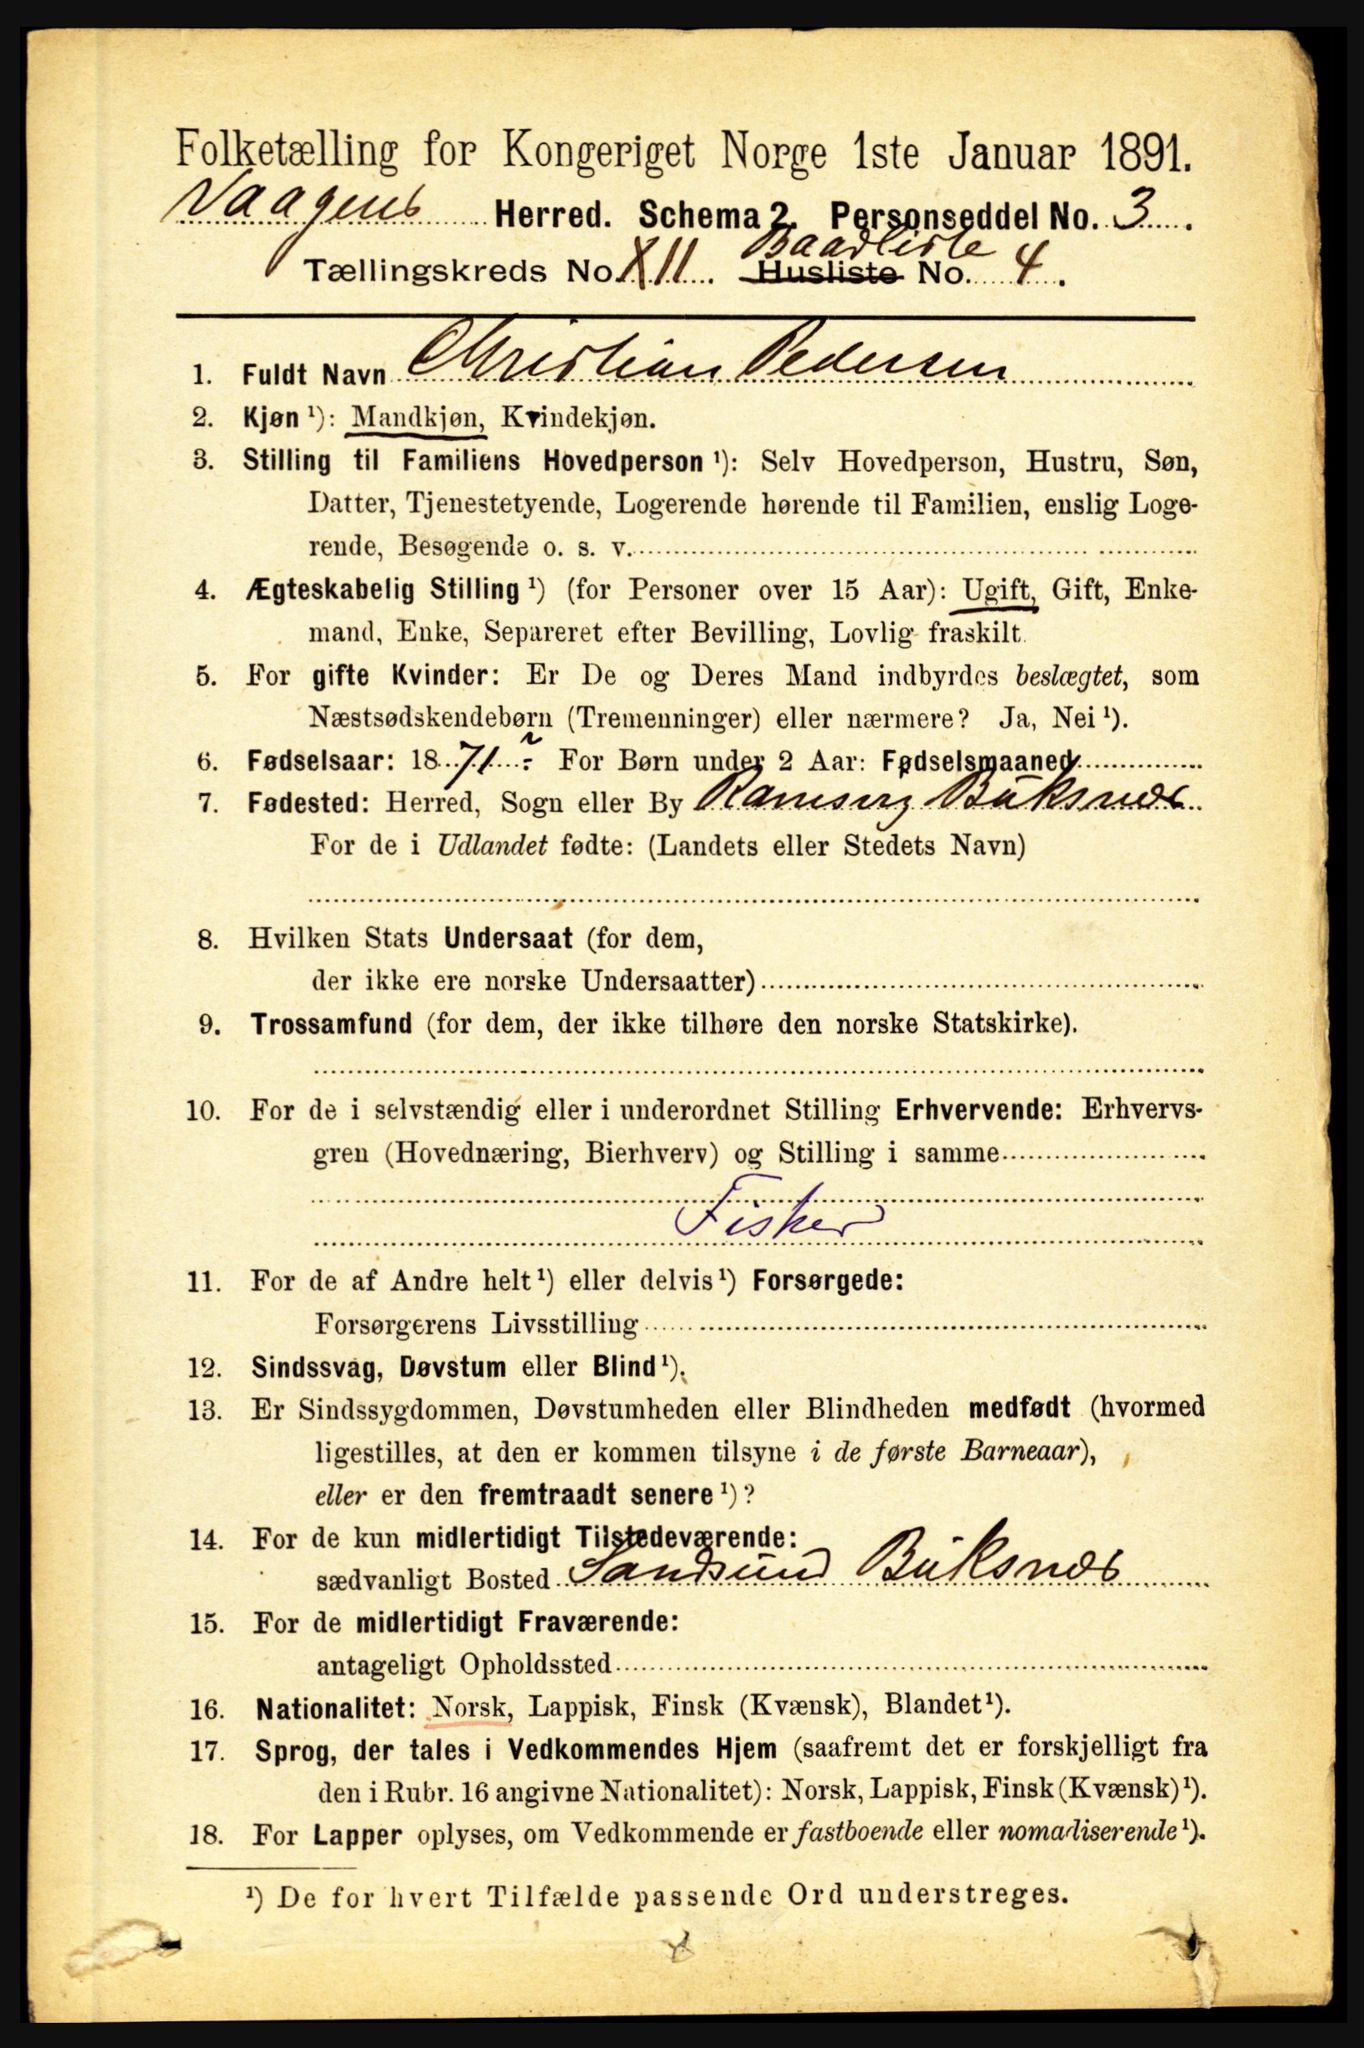 Folketælling for Kongeriget Norge 1ste Januar 1891.
Vaagens Herred. Schema 2. Personseddel No. 3.
Baadliste
Tællingskreds No. XII. Husliste No. 4.
1. Fuldt Navn Christian Pedersen
2. Kjøn ¹): Mandkjøn, Kvindekjøn.
3. Stilling til Familiens Hovedperson ¹): Selv Hovedperson, Hustru, Søn,
Datter, Tjenestetyende, Logerende hørende til Familien, enslig Loge-
rende, Besøgende o. s. v.
4. Ægteskabelig Stilling ¹) (for Personer over 15 Aar): Ugift, Gift, Enke-
mand, Enke, Separeret efter Bevilling, Lovlig fraskilt.
5. For gifte Kvinder: Er De og Deres Mand indbyrdes beslægtet, som
Næstsødskendebørn (Tremenninger) eller nærmere? Ja, Nei ¹).
6. Fødselsaar: 1871. For Børn under 2 Aar: Fødselsmaaned
7. Fødested: Herred, Sogn eller By Ramsvig Buksnæs
For de i Udlandet fødte: (Landets eller Stedets Navn)
8. Hvilken Stats Undersaat (for dem,
der ikke ere norske Undersaatter)
9. Trossamfund (for dem, der ikke tilhøre den norske Statskirke).
10. For de i selvstændig eller i underordnet Stilling Erhvervende: Erhvervs-
gren (Hovednæring, Bierhverv) og Stilling i samme
Fisker
11. For de af Andre helt ¹) eller delvis ¹) Forsørgede:
Forsørgerens Livsstilling
12. Sindssvag, Døvstum eller Blind ¹).
13. Er Sindssygdommen, Døvstumheden eller Blindheden medfødt (hvormed
ligestilles, at den er kommen tilsyne i de første Barneaar),
eller er den fremtraadt senere ¹)?
14. For de kun midlertidigt Tilstedeværende:
sædvanligt Bosted Sandsund Buksnæs
15. For de midlertidigt Fraværende:
antageligt Opholdssted
16. Nationalitet: Norsk, Lappisk, Finsk (Kvænsk), Blandet ¹).
17. Sprog, der tales i Vedkommendes Hjem (saafremt det er forskjelligt fra
den i Rubr. 16 angivne Nationalitet): Norsk, Lappisk, Finsk (Kvænsk) ¹).
18. For Lapper oplyses, om Vedkommende er fastboende eller nomadiserende ¹).
¹) De for hvert Tilfælde passende Ord understreges.